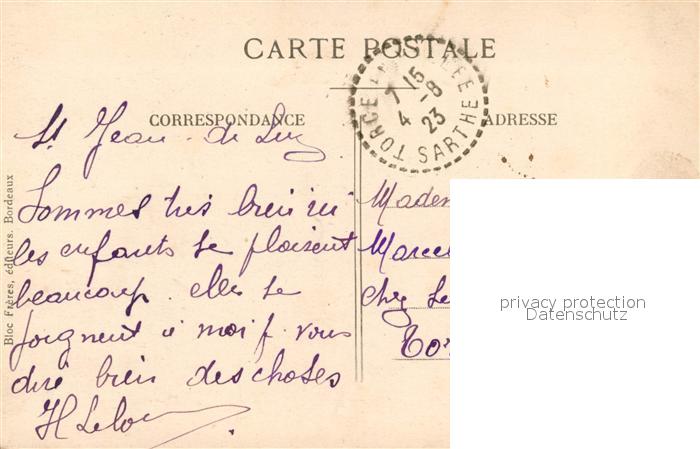 CARTE POSTALE
CORRESPONDANCE
ADRESSE
TORCE EN VALLEE
7 15
4 -8
23
SARTHE
St Jean de Luz
Sommes très bien ici
les enfants se plaisent
beaucoup. elles se
joignent à moi p. vous
dire bien des choses
H Lelou
Madem
Marcel
Chez Le
Tor
Bloc Frères, éditeurs, Bordeaux
privacy protection
Datenschutz